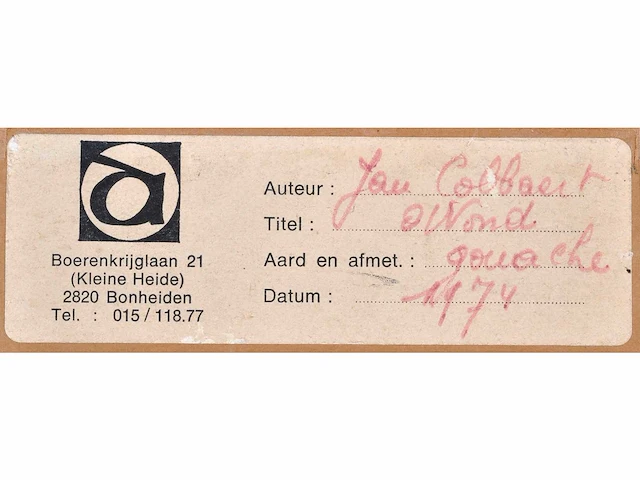 a
Boerenkrijglaan 21
(Kleine Heide)
2820 Bonheiden
Tel. : 015 / 118.77
Auteur : Jan Colbaert
Titel : avond
Aard en afmet. : gouache
Datum : 1974